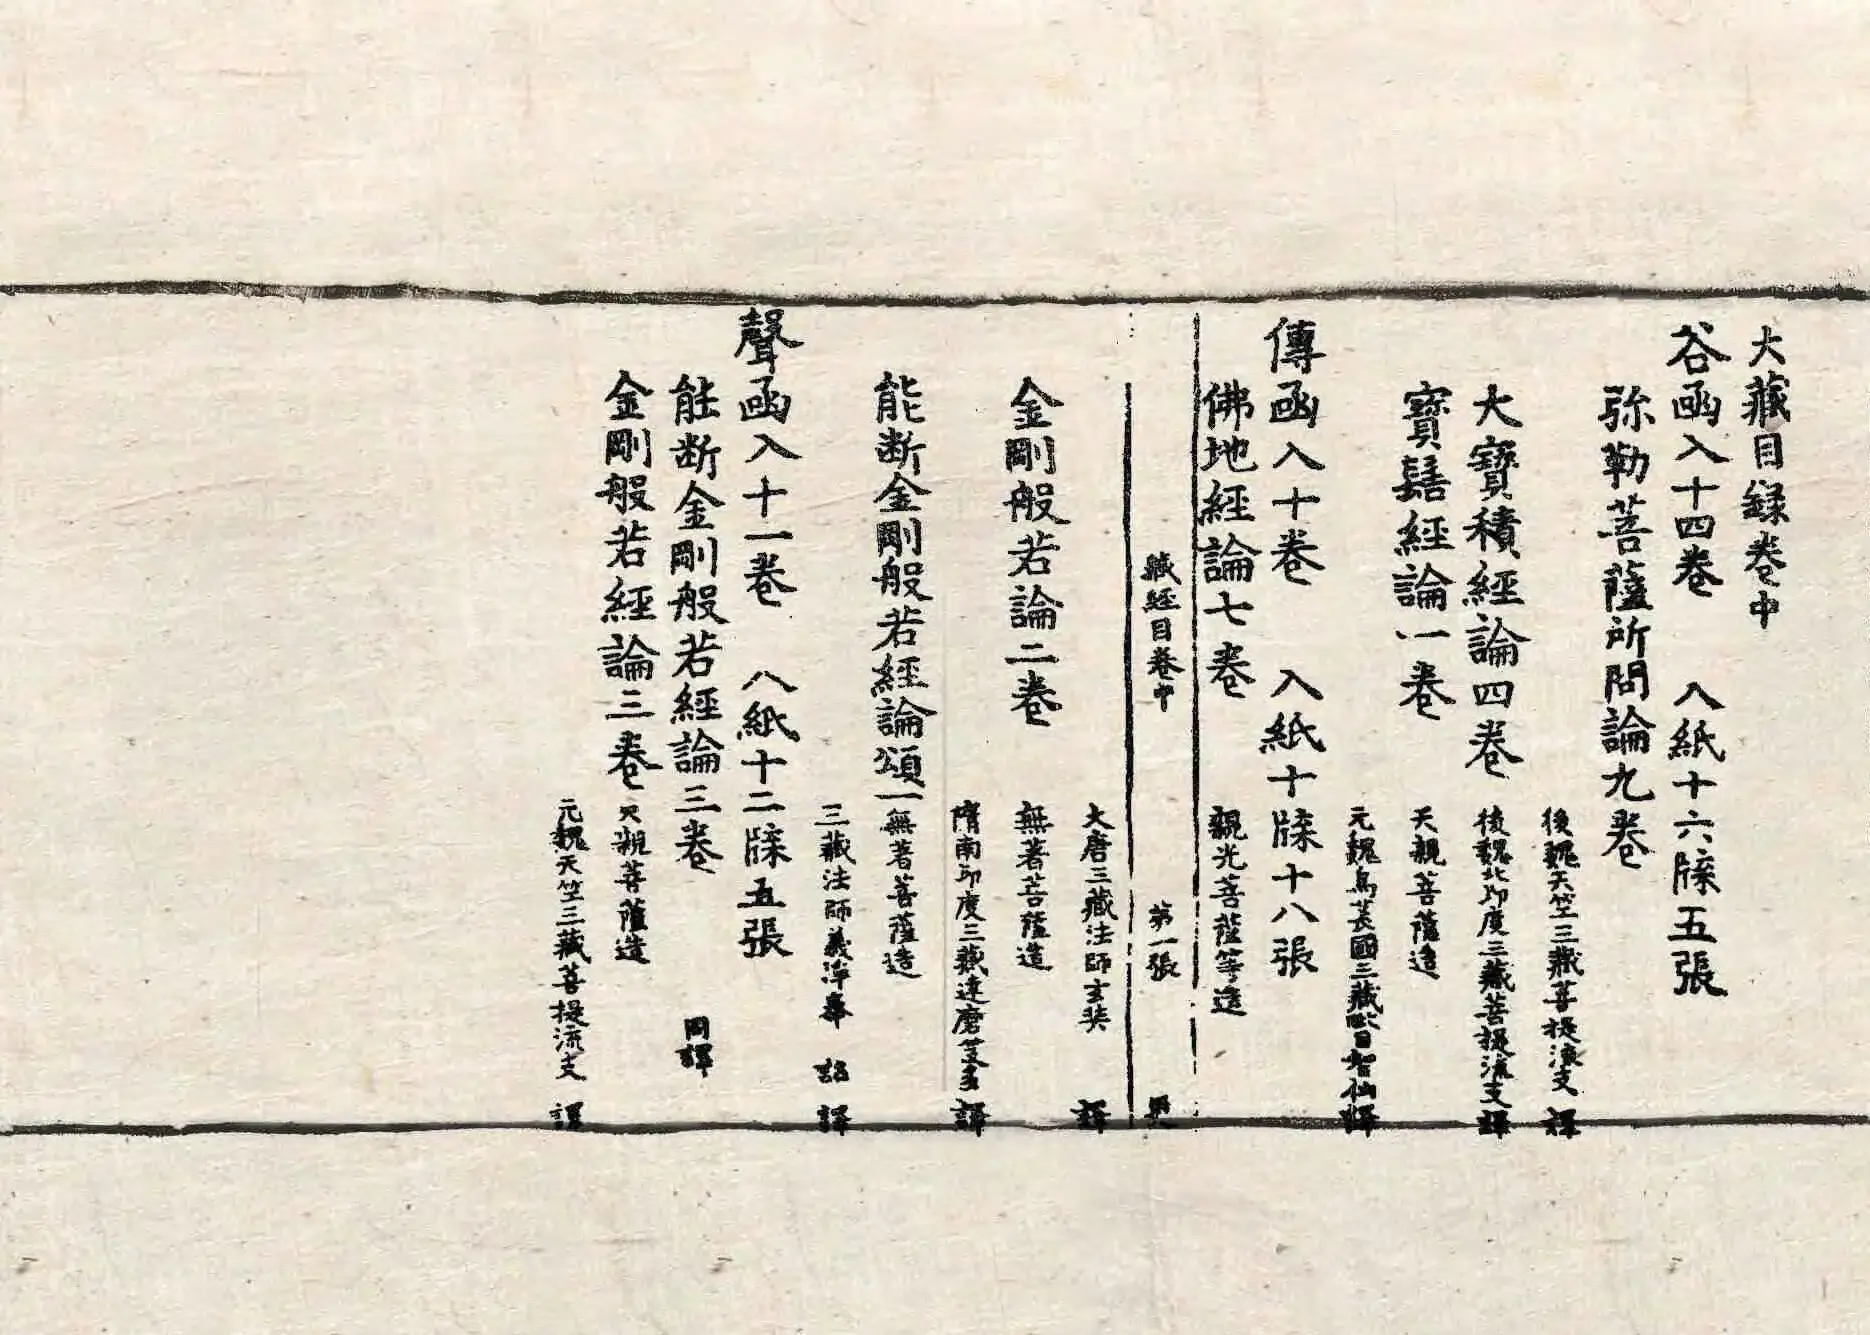 大藏目録卷中
谷函入十四卷　入紙十六牒五張
弥勒菩薩所問論九卷
後魏天竺三藏菩提流支　譯
大寶積經論四卷　後魏北印度三藏菩提流支譯
寶髻經論一卷　天親菩薩造
元魏烏萇國三藏毗目智仙譯
傳函入十卷　入紙十牒十八張
佛地經論七卷　親光菩薩等造
藏經目卷中　第一張　更
大唐三藏法師玄奘　譯
金剛般若論二卷　無著菩薩造
隋南印度三藏達磨笈多　譯
能断金剛般若經論頌一　無著菩薩造
三藏法師義淨奉　詔　譯
聲函入十一卷　八紙十二牒五張
能断金剛般若經論三卷　同譯
金剛般若經論三卷　天親菩薩造
元魏天竺三藏菩提流支　譯